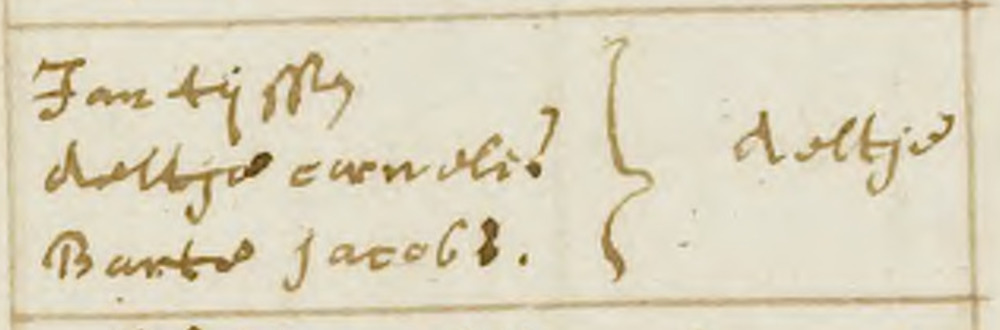 Jan tijssen
deeltje cornelis
Barte jacobs.
deeltje